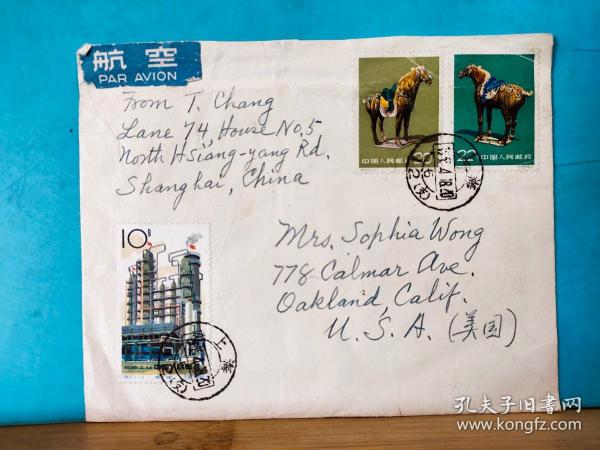 航空
PAR AVION
From T. Chang
Lane 74, House No. 5,
North Hsiang-yang Rd.
Shanghai, China
中国人民邮政
20
22
中国人民邮政
上海
Mrs. Sophia Wong
778 Calmar Ave.
Oakland, Calif.
U. S. A. (美国)
10分
上海
孔夫子旧书网
www.kongfz.com